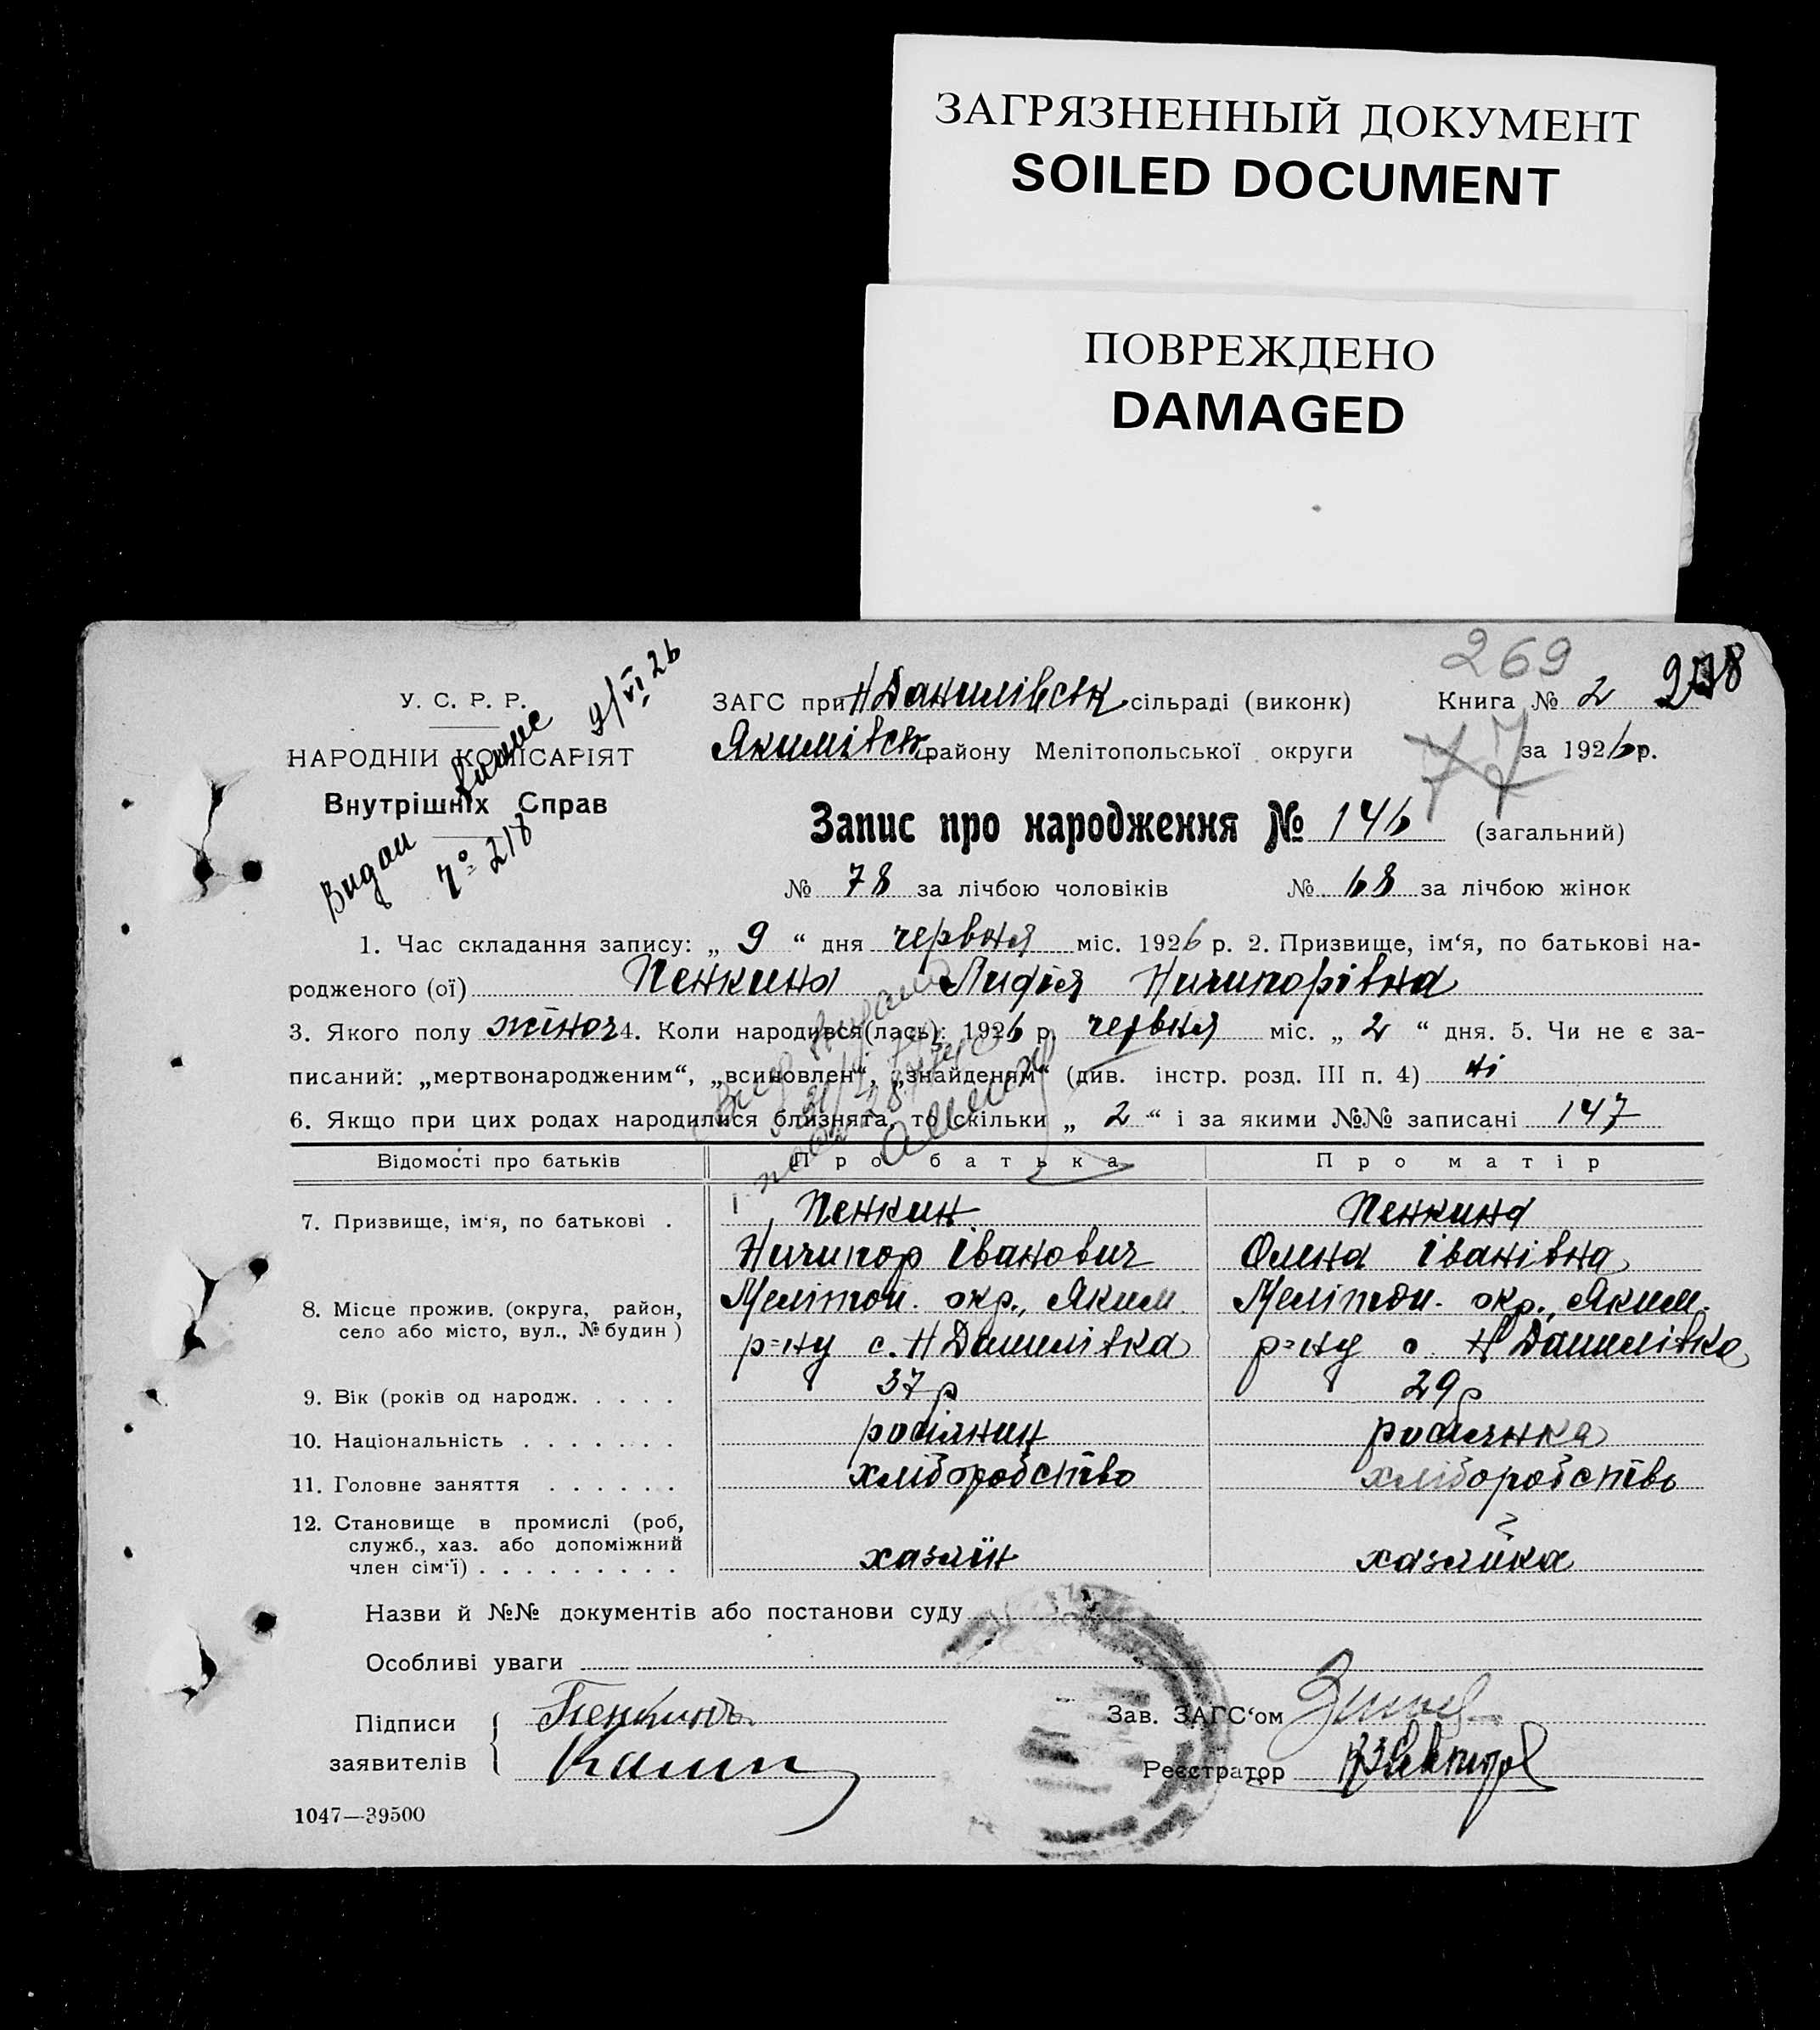 ЗАГРЯЗНЕННЫЙ ДОКУМЕНТ
SOILED DOCUMENT
ПОВРЕЖДЕНО
DAMAGED
269
278
У. С. Р. Р.
НАРОДНІЙ КОМІСАРІЯТ
Внутрішніх Справ
Видан
9/VI 26
№ 218
ЗАГС при Н Данилівськ сільраді (виконк) Книга № 2
Якимівськ району Мелітопольської округи за 1926 р.
77
Запис про народження № 146 (загальний)
№ 78 за лічбою чоловіків № 68 за лічбою жінок
1. Час складання запису: „ 9 “ дня червня міс. 1926 р. 2. Призвище, ім‘я, по батькові на-
родженого (ої) Пенкина Лидія Ничипорівна
3. Якого полу жіноч 4. Коли народився(лась): 1926 р. червня міс. „ 2 “ дня. 5. Чи не є за-
писаний: „мертвонародженим“, „всиновлен“, „знайденям“ (див. інстр. розд. III п. 4) ні
6. Якщо при цих родах народилися близнята, то скільки „ 2 “ і за якими №№ записані 147
Відомості про батьків Про батька Про матір
7. Призвище, ім‘я, по батькові . Пенкин Пенкина
Ничипор Іванович Олина Іванівна
8. Місце прожив. (округа, район, Мелітоп. окр., Яким. Мелітоп. окр., Яким.
село або місто, вул., № будин ) р=ну с. Н Данилівка р=ну с Н Данилівка
9. Вік (років од народж. . . . . 37 р 29 р
10. Національність . . . . . . . росіянин росіянка
11. Головне заняття . . . . . . хліборобство хліборобство
12. Становище в промислі (роб,
служб., хаз. або допоміжний
член сім‘ї) . . . . . . . . . хазяїн хазяйка
Назви й №№ документів або постанови суду
Особливі уваги
Підписи заявителів
Пенкинъ
Зав. ЗАГС‘ом
Реєстратор
1047—39500